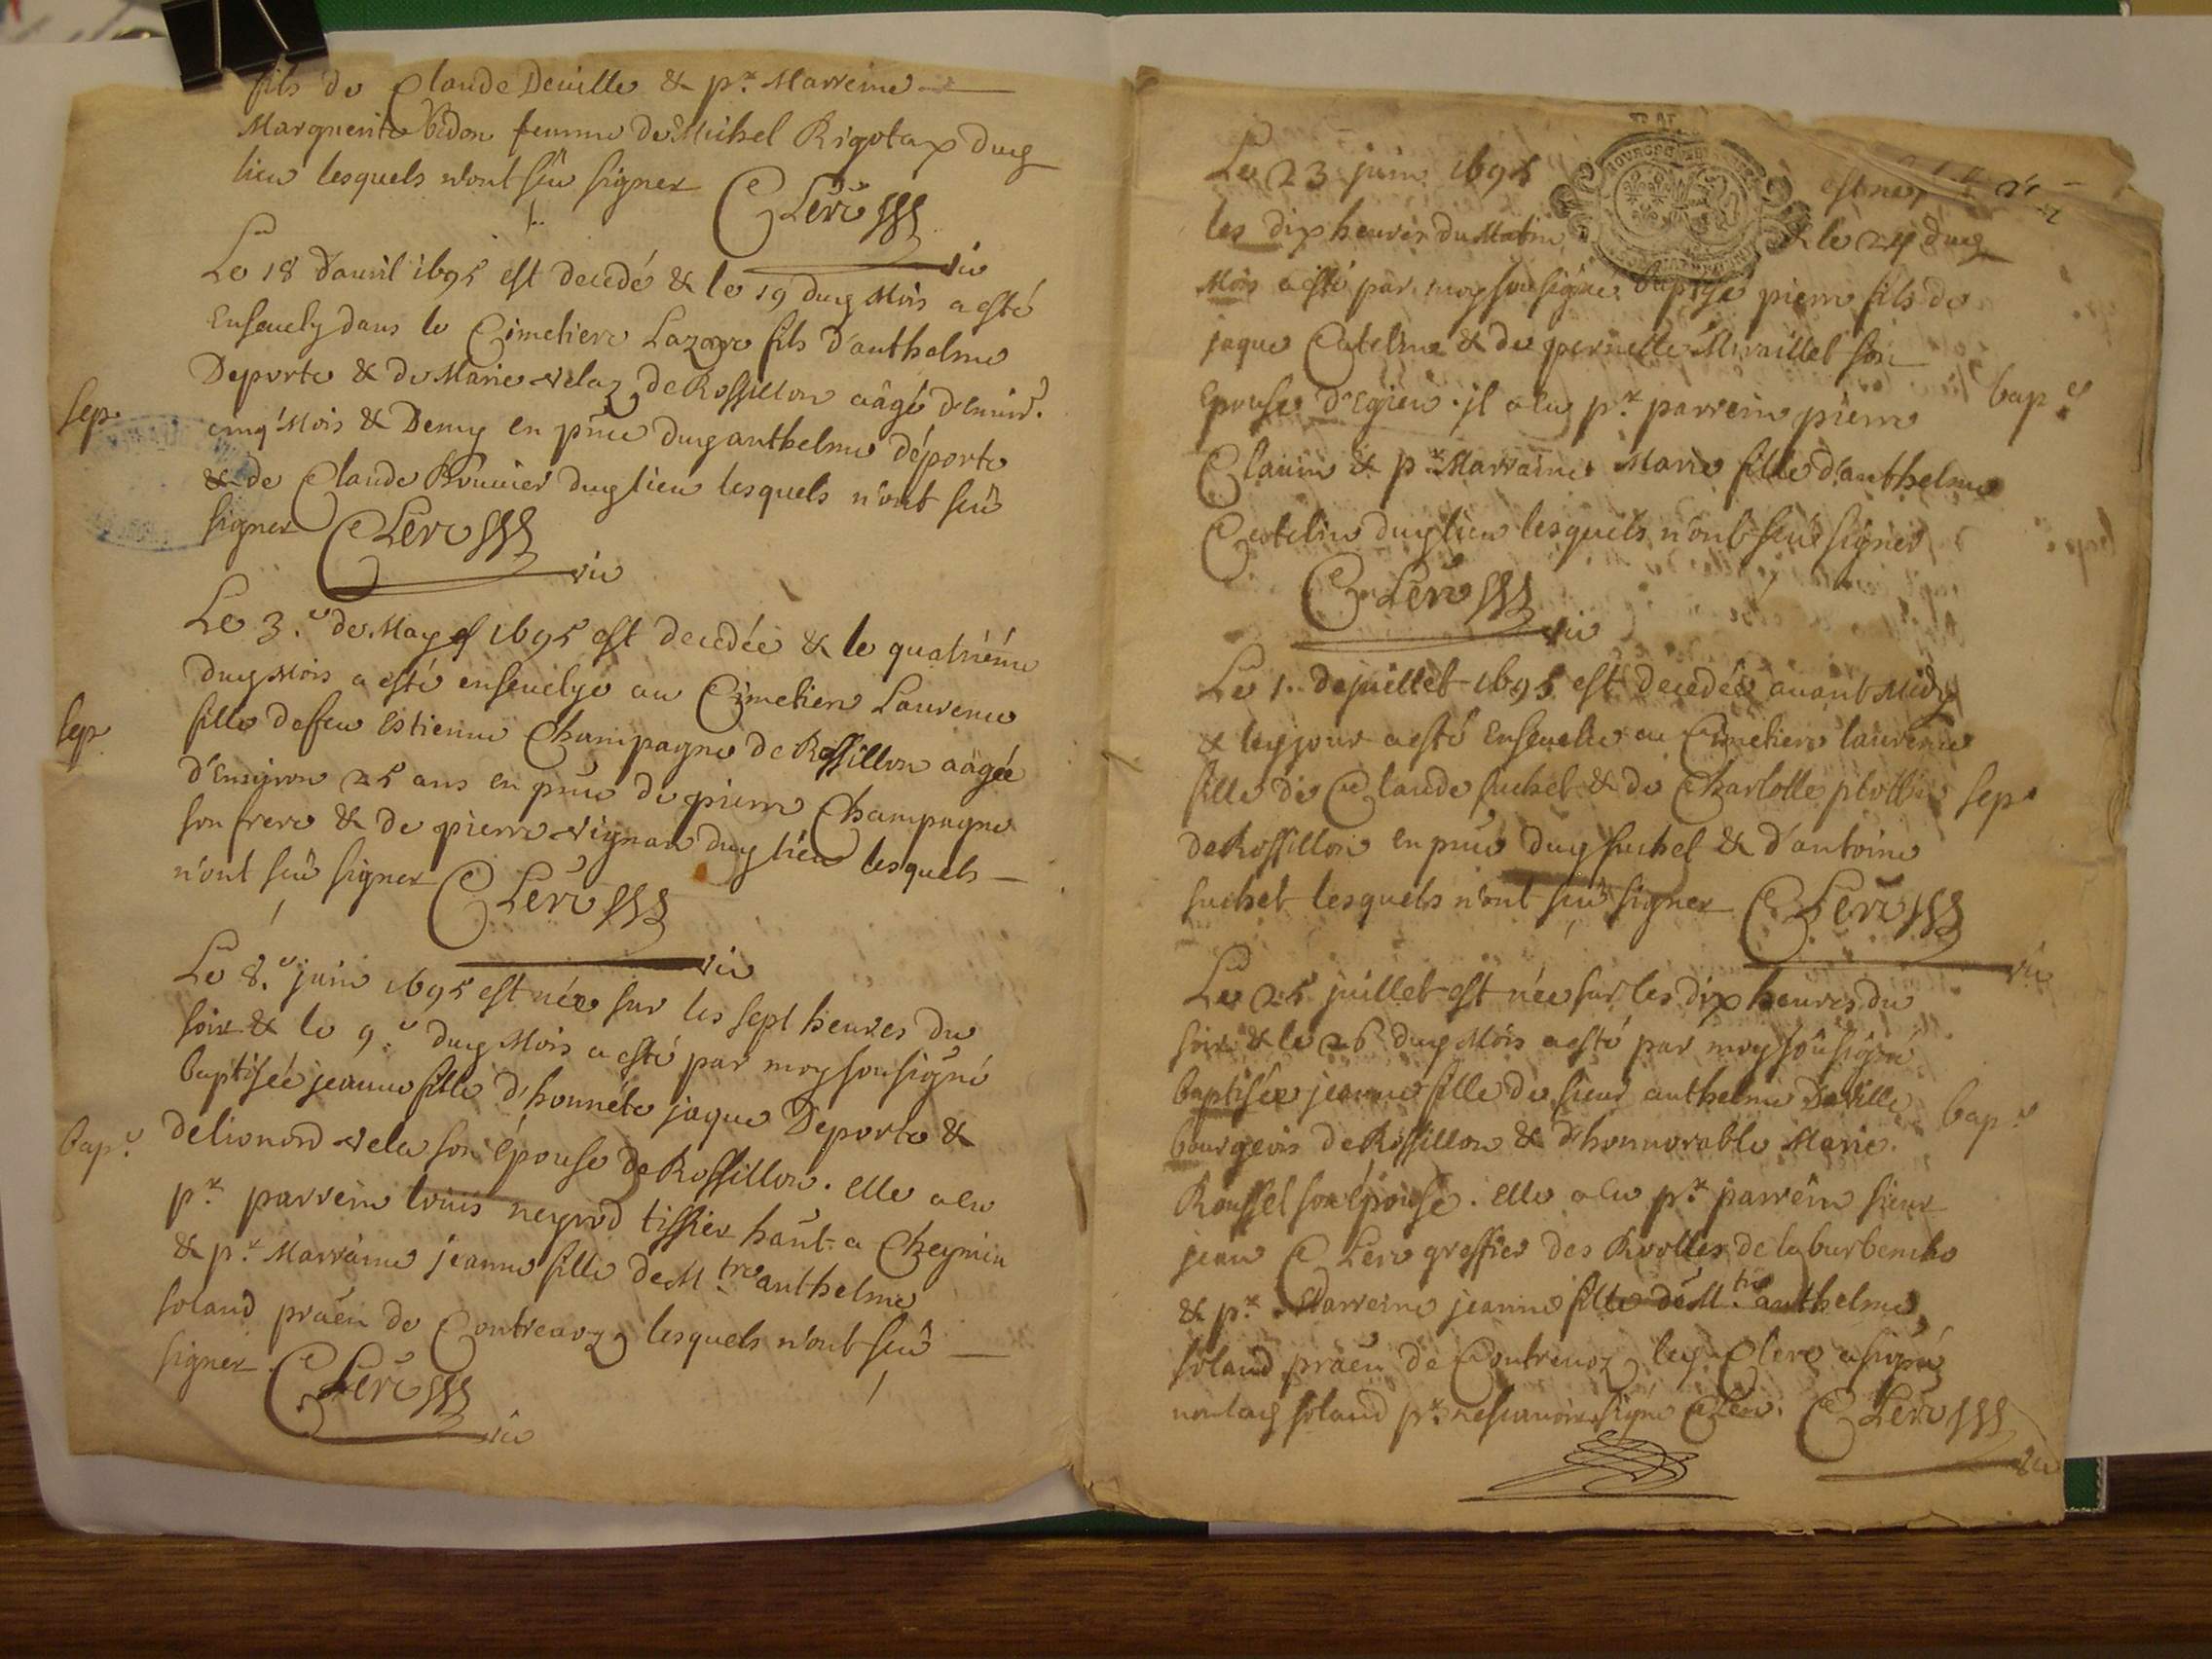 fils de Claude Deville & pr. Marreine
Marguerite Bidon femme de Michel Rigotax dug
lieu lesquels n'ont sçu signer CLerc
vic
Le 18 d'auril 1695 est decedé & le 19 dug Mois a esté
Enseuely dans le Cimetiere Lazare fils d'anthelme
Deporte & de Marie velaz de Rossillon aâgé d'enuir.
cinq Mois & Demy en pñce dug anthelme déporte
& de Claude Brunier dug lieu lesquels n'ont sçu
signer CLerc
vic
sep.
Le 3.e de May 1695 est decedée & le quatriéme
dug Mois a esté enseuelye au Cimetiere Laurence
fille de feu Estienne Champagne de Rossillon aâgée
d'Enuiron 25 ans en pñce de pierre Champagne
son frere & de pierre vignan dug lieu lesquels
n'ont sçu signer CLerc
vic
sep
Le 8.e juin 1695 est née sur les sept heures du
soir & le 9.e dug Mois a esté par moy sousigné
baptisée jeanne fille d'honnéte jaque Deporte &
de lionord vela son épouse de Rossillon. elle a eu
pr. parrein louis neyrod tissier haut a Cheynieu
& pr. Marraine jeanne fille de M.tre anthelme
soland praen de Contreuoz lesquels n'ont sçu
signer CLerc
vic
bap.e
Le 23 juin 1695 est né
les dix heures du Matin & le 24 dug
Mois a esté par moy sousigné baptisé pierre fils de
jaque Catelin & de pernette Miraillet son
Epouse d'Egieu. il a eu pr. parrein pierre
Clauin & pr. Marraine Marie fille d'anthelme
Catelin dug lieu lesquels n'ont sçu signer
CLerc
vic
bap.e
Le 1. de juillet 1695 est decedée auant Midy
& led jour a esté Enseuelie au Cimetiere laurence
fille de Claude suchet & de Charlotte
de Rossillon en pñce dug suchet & d'antoine
suchet lesquels n'ont sçu signer CLerc
vic
sep.
Le 25 juillet est née sur les dix heures du
soir & le 26 dug Mois a esté par moy sousigné
baptisée jeanne fille de sieur anthelme Deville
bourgeois de Rossillon & d'honnorable Marie
Roussel son épouse. elle a eu pr. parrein sieur
jean CLerc greffier des Rolles de la burbenche
& pr. Marreine jeanne fille de M.tre anthelme
soland praen de Contreuoz led Clerc a signé
non lad soland pr. ne sçauoir signé CLerc. CLerc
vic
bap.e